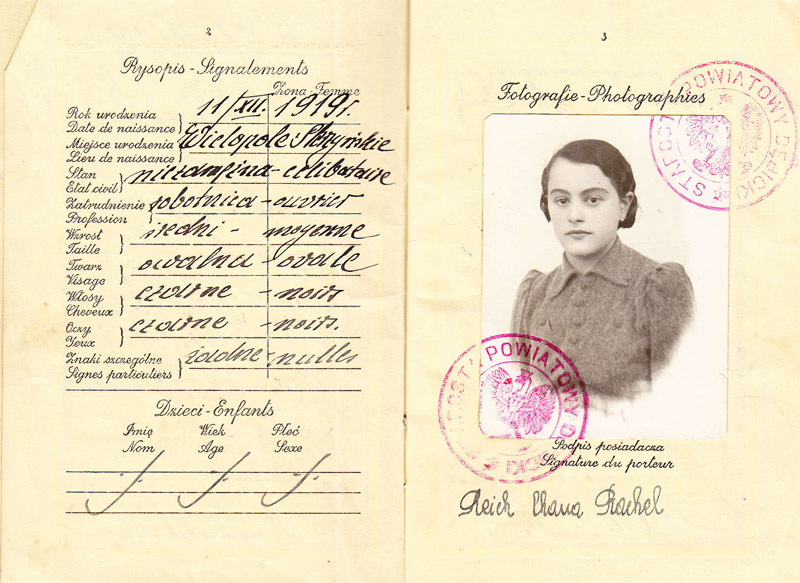 2
Rysopis - Signalements
Żona - Femme
Rok urodzenia
Date de naissance
11/XII. 1919 r.
Miejsce urodzenia
Lieu de naissance
Wielopole Skrzyńskie
Stan
Etat civil
niezamężna - celibataire
Zatrudnienie
Profession
robotnica - ouvrier
Wzrost
Taille
średni - moyenne
Twarz
Visage
owalna - ovale
Włosy
Cheveux
czarne - noirs
Oczy
Yeux
czarne - noirs.
Znaki szczególne
Signes particuliers
żadne - nulles
Dzieci - Enfants
Imię Wiek Płeć
Nom Age Sexe
3
Fotografie - Photographies
STAROSTA POWIATOWY DĘBICKI
STAROSTA POWIATOWY DĘBICKI
Podpis posiadacza
Signature du porteur
Reich Chana Rachel